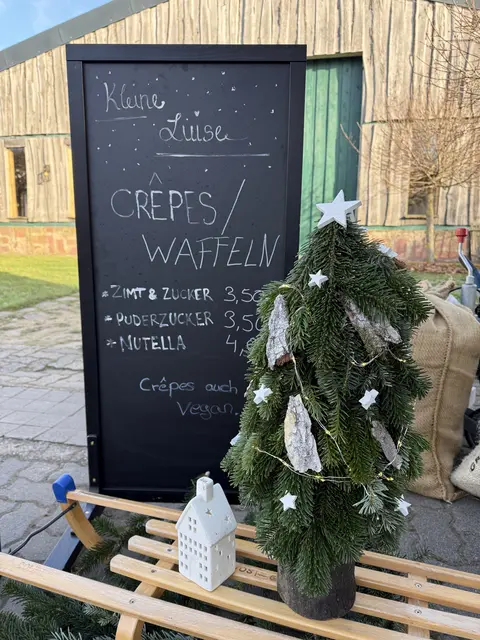 Kleine
Luise
CRÊPES/
WAFFELN
* ZIMT & ZUCKER 3,50
* PUDERZUCKER 3,50
* NUTELLA 4,
Crêpes auch
Vegan.